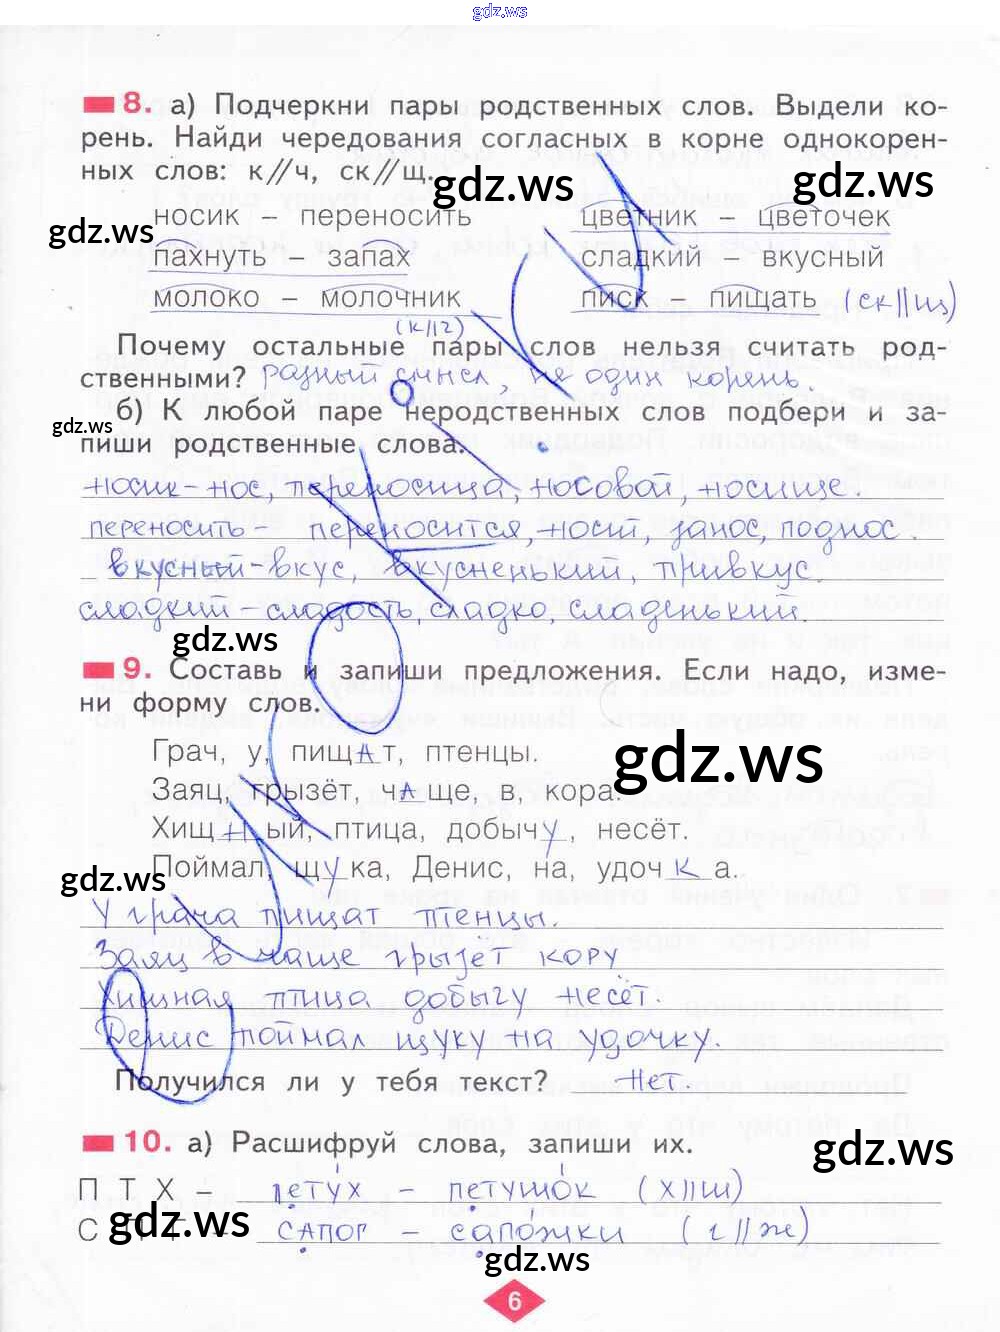 gdz.ws
8. а) Подчеркни пары родственных слов. Выдели ко-
рень. Найди чередования согласных в корне однокорен-
ных слов: к//ч, ск//щ.
gdz.ws
gdz.ws
gdz.ws
носик – переносить цветник – цветочек
пахнуть – запах сладкий – вкусный
молоко – молочник писк – пищать (ск//щ)
(к//ч)
Почему остальные пары слов нельзя считать род-
ственными? разный смысл, не один корень.
б) К любой паре неродственных слов подбери и за-
gdz.ws
пиши родственные слова.
носик – нос, переносица, носовой, носище.
переносить – переносится, носит, занос, поднос.
вкусный – вкус, вкусненький, привкус.
сладкий – сладость, сладко, сладенький.
gdz.ws
9. Составь и запиши предложения. Если надо, изме-
ни форму слов.
Грач, у, пищат, птенцы.
gdz.ws
Заяц, грызёт, чаще, в, кора.
Хищный, птица, добычу, несёт.
Поймал, щука, Денис, на, удочка.
gdz.ws
gdz.ws
У грача пищат птенцы.
Заяц в чаще грызет кору
Хищная птица добычу несёт.
Денис поймал щуку на удочку.
Получился ли у тебя текст? Нет.
10. а) Расшифруй слова, запиши их.
gdz.ws
П Т Х – петух – петушок (х//ш)
С П Г – сапог – сапожки (г//ж)
gdz.ws
gdz.ws
6